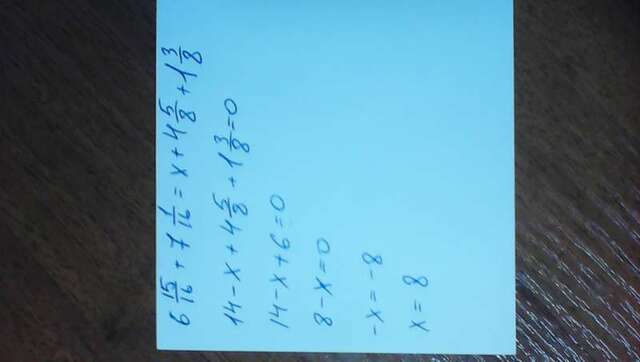 6 15/16 + 7 1/16 = x + 4 5/8 + 1 3/8
14 - x + 4 5/8 + 1 3/8 = 0
14 - x + 6 = 0
8 - x = 0
-x = -8
x = 8